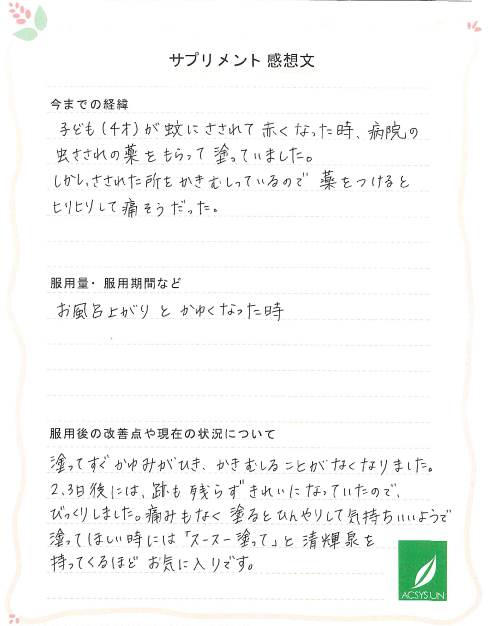 サプリメント 感想文
今までの経緯
子ども(4才)が蚊にさされて赤くなった時、病院の
虫さされの薬をもらって塗っていました。
しかし、さされた所をかきむしっているので薬をつけると
ヒリヒリして痛そうだった。
服用量・服用期間など
お風呂上がりとかゆくなった時
服用後の改善点や現在の状況について
塗ってすぐかゆみがひき、かきむしることがなくなりました。
2、3日後には、跡も残らずきれいになっていたので、
びっくりしました。痛みもなく塗るとひんやりして気持ちいいようで
塗ってほしい時には「スースー塗って」と清輝泉を
持ってくるほどお気に入りです。
ACSYSUN